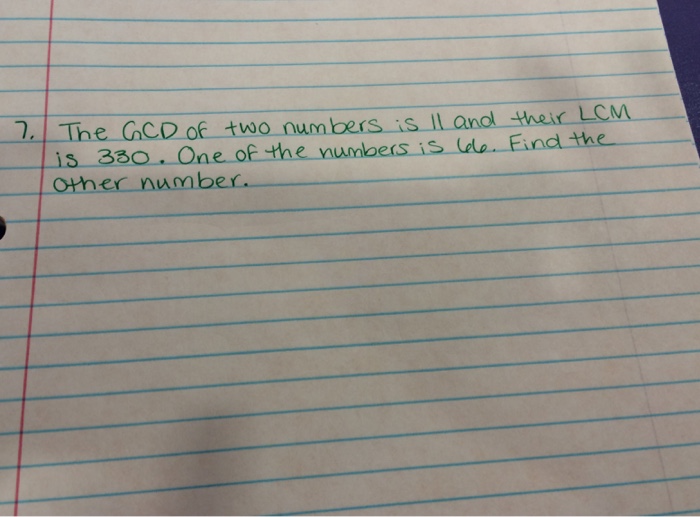 7. The GCD of two numbers is 11 and their LCM
is 330. One of the numbers is 66. Find the
other number.